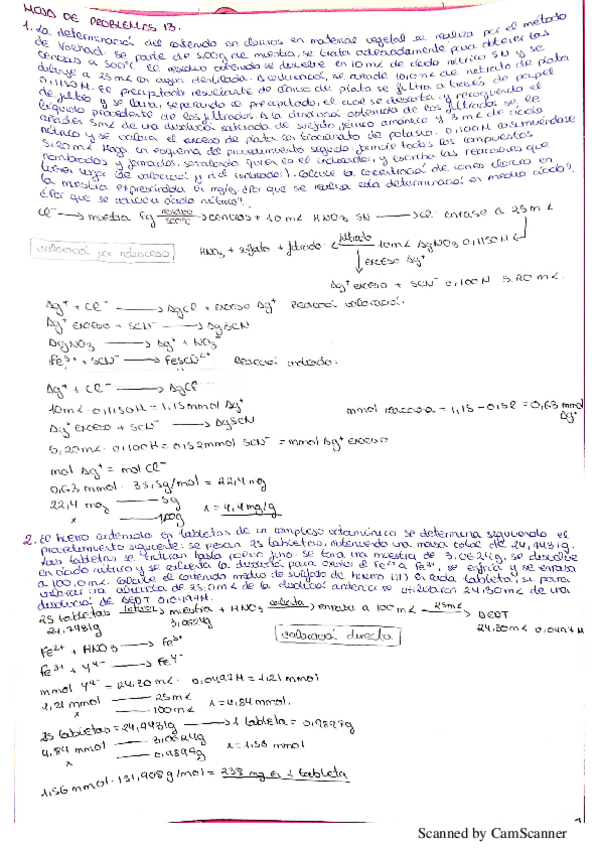 HOJA DE PROBLEMAS 13.
1. La determinació del contenido en cloruros en material vegetal se realiza por el método
de Volhard. Se parte de 5,00g de muestra, se trata adecuadamente para obtener las
cenizas a 500°C. El residuo obtenido se disuelve en 10 mL de ácido nítrico 5N y se
diluye a 25 mL con agua destilada. A continuació, se añade 10,0 mL de nitrato de plata
0,1150M. El precipitado resultante de cloruro de plata se filtra a través de papel
de filtro y se lava, separando el precipitado, el cual se descarta, y recogiendo el
líquido procedente de los filtrados. A la disolució obtenida de los filtrados se le
añaden 5mL de una disolució saturada de sulfato férrico amónico y 3 mL de ácido
nítrico y se valora el exceso de plata con tiocianato de potasio 0,100M consumiéndose
5,20 mL. Haga un esquema del procedimiento seguido. formule todos los compuestos
nombrados y formados, señalando quien es el indicador, y escriba las reacciones que
tienen lugar (la valoració y la del indicador). Calcule la concentració de iones cloruro en
la muestra expresándola en mg/g. ¿Por qué se realiza esta determinació en medio ácido?
¿Por que se utiliza ácido nítrico?
Cl⁻ → muestra 5g residuo 500°C → cenizas + 10 mL HNO₃ 5N → Cl⁻ enrase a 25 mL
valoració por retroceso
HNO₃ + sulfato + filtrado ← filtrado 10mL AgNO₃ 0,1150M
exceso Ag⁺
Ag⁺ exceso + SCN⁻ 0,100N 5.20 mL.
Ag⁺ + Cl⁻ → AgCl + exceso Ag⁺ Reacció valoració.
Ag⁺ exceso + SCN⁻ → AgSCN
AgNO₃ → Ag⁺ + NO₃⁻
Fe³⁺ + SCN⁻ → FeSCN²⁺ Reacció indicador.
Ag⁺ + Cl⁻ → AgCl
10mL · 0,1150M = 1,15mmol Ag⁺
mmol reacciona = 1,15 - 0,52 = 0,63 mmol Ag⁺
Ag⁺ exceso + SCN⁻ → AgSCN
5,20mL · 0,100M = 0,52mmol SCN⁻ = mmol Ag⁺ exceso
mol Ag⁺ = mol Cl⁻
0,63 mmol · 35,5g/mol = 22,4 mg
22,4 mg — 5g
x — 1g x = 4,4mg/g
2. El hierro contenido en tabletas de un complejo vitamínico se determina siguiendo el
procedimiento siguiente: se pesan 25 tabletas, obteniendo una masa total de 24,7431g.
Las tabletas se trituran hasta polvo fino. Se toma una muestra de 3,0624g, se disuelve
en ácido nítrico y se calienta la disolució para oxidar el Fe²⁺ a Fe³⁺, se enfría y se enrasa
a 100,0mL. Calcule el contenido medio de sulfato de hierro (II) en cada tableta, si para
valorar una alícuota de 25,0mL de la disolució anterior se utilizaron 24.30mL de una
disolució de AEDT 0,0497M.
25 tabletas triturar → muestra + HNO₃ calienta → enrasa a 100mL 25mL → AEDT
24,7431g 3,0624g 24.30mL 0,0497M
Fe²⁺ + HNO₃ → Fe³⁺
valoració directa
Fe³⁺ + Y⁴⁻ → FeY⁻
mmol Y⁴⁻ = 24.30 mL · 0,0497M = 1,21 mmol
1,21 mmol — 25mL
x — 100mL x = 4,84 mmol.
25 tabletas = 24,7431g → 1 tableta = 0,9897g
4,84 mmol — 3,0624g
x — 0,9897g x = 1,56 mmol
1,56 mmol · 151,908g/mol = 238 mg en 1 tableta
Scanned by CamScanner